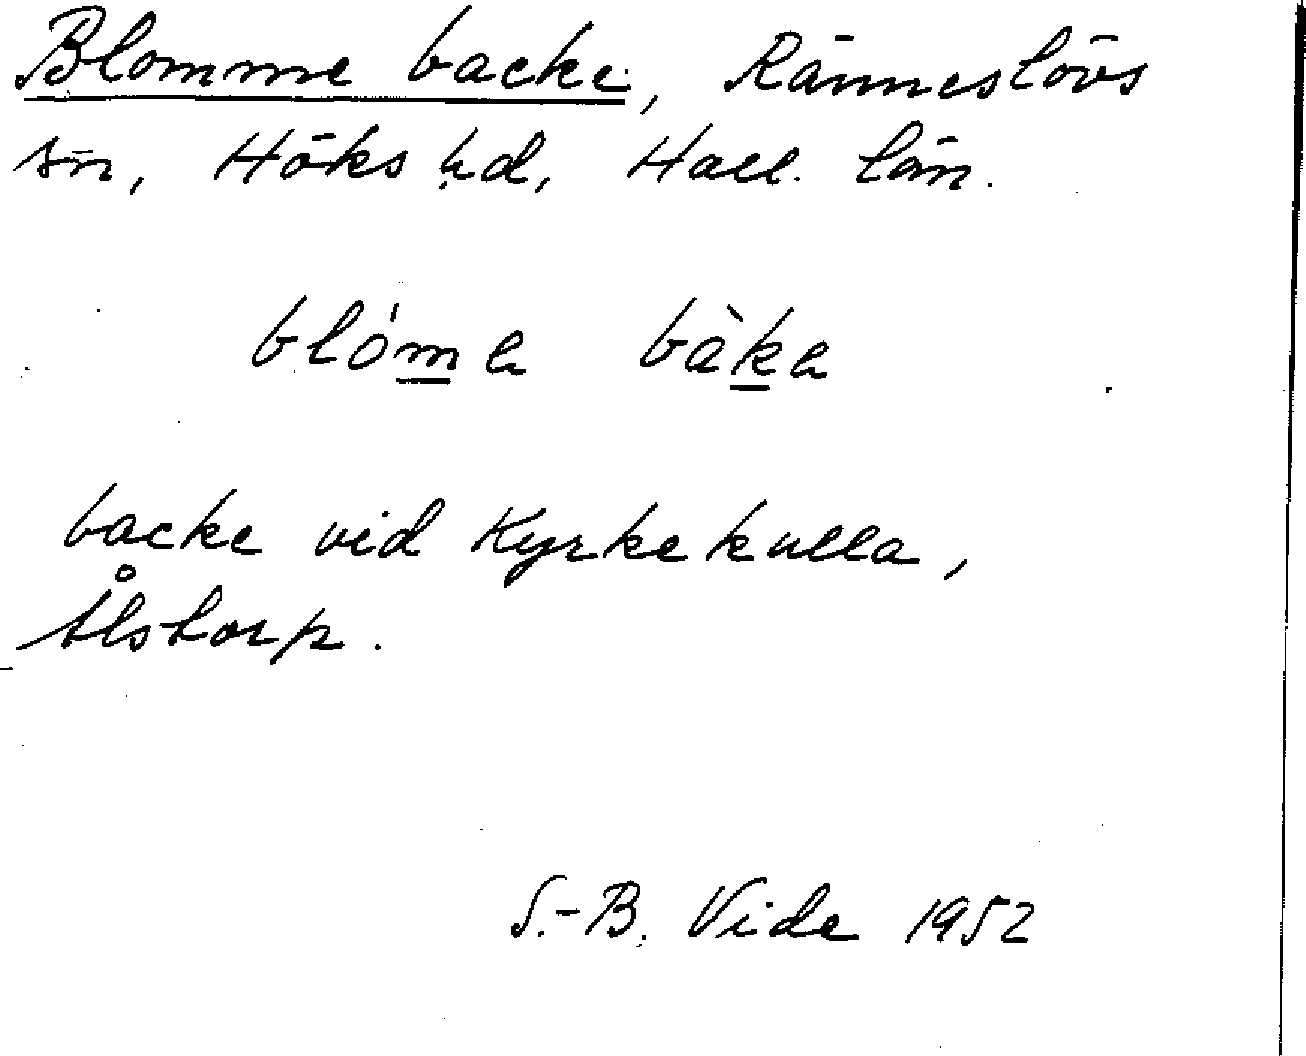 Blomme backe, Ränneslövs
sn, Höks hd, Hall. län.
blóma bàka
backe vid Kyrkekulla,
Ålstorp.
S.-B. Vide 1952